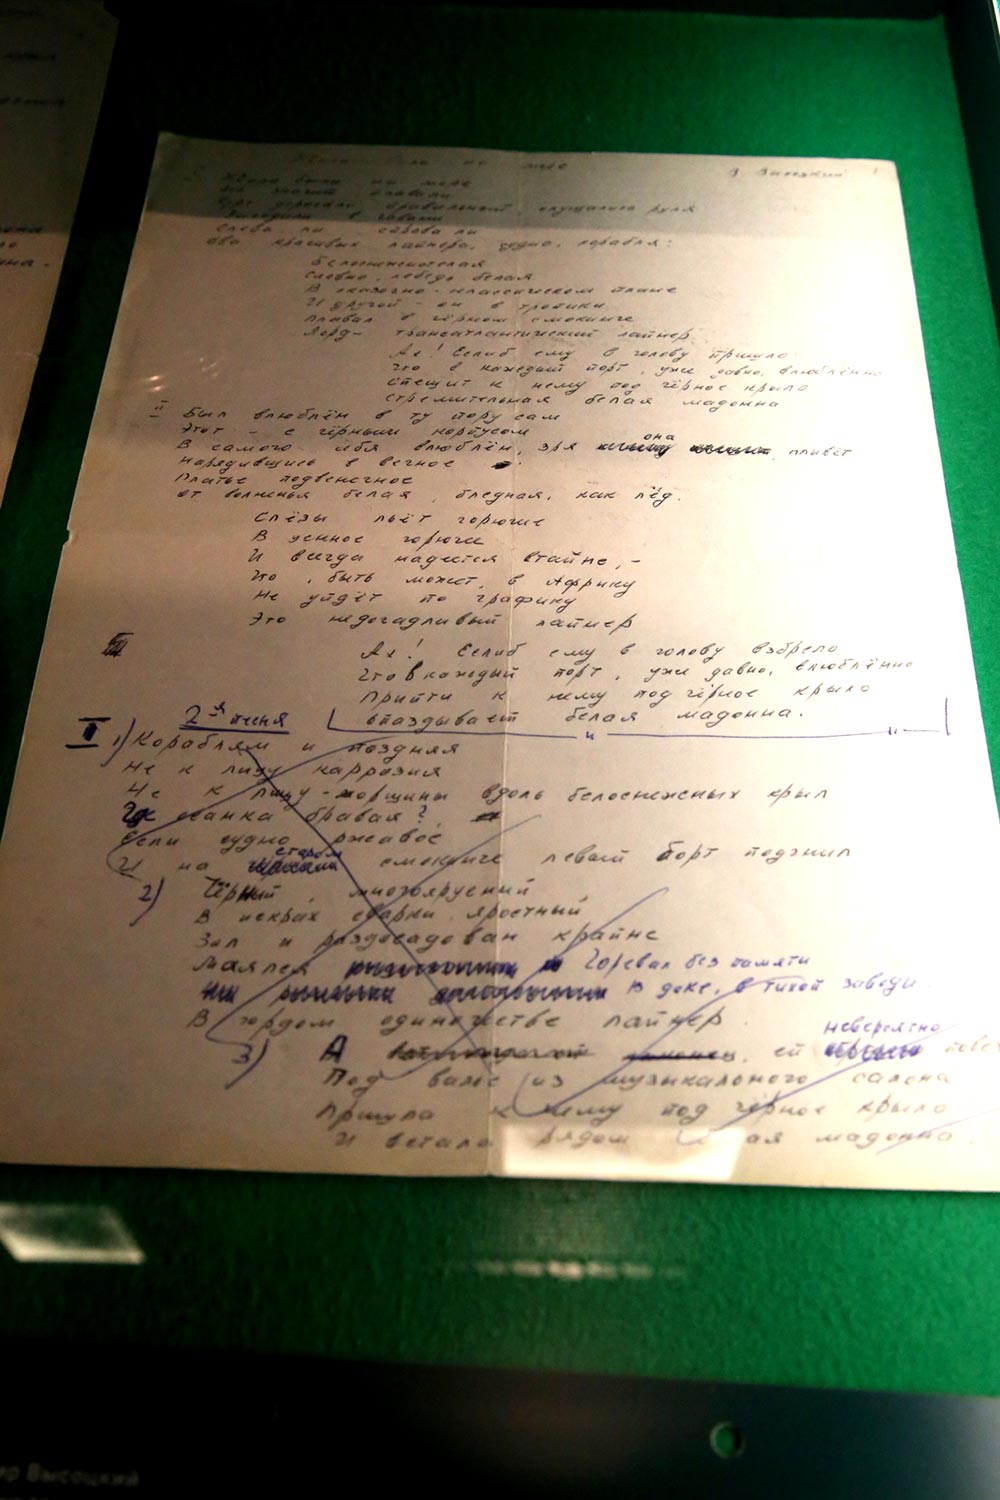 Жили были на море
В. Высоцкий
I Жили были на море
Это значит плавали
Курс держали правильный, слушались руля
Заходили в гавани
Слева ли справа ли
Два красивых лайнера, судна, корабля:
Белоснежнотелая
Словно лебедь белая
В сказочно-классическом плане
И другой - он в тропики
Плавал в чёрном смокинге
Лорд - трансатлантический лайнер.
Ах! Еслиб ему в голову пришло
Что в каждый порт, уже давно, влюблённо
Спешит к нему под чёрное крыло
Стремительная белая мадонна
II Был влюблён в ту пору сам
Этот - с чёрным корпусом
В самого себя влюблён, зря она плывёт
Нарядившись в вечное
Платье подвенечное
От волненья белая, бледная, как лёд.
Слёзы льёт горючие
В ценное горючее
И всегда надеется втайне, -
Что, быть может, в Африку
Не уйдёт по графику
Это недогадливый лайнер
III
Ах! Еслиб ему в голову взбрело
Что в каждый порт, уже давно, влюблённо
Прийти к нему под чёрное крыло
Опаздывает белая мадонна.
2-я песня
II 1) Кораблям и поздняя
Не к лицу каррозия
Не к лицу - морщины вдоль белоснежных крыл
Где осанка бравая?
Если судно ржавое
старом
И на смокинге левый борт подгнил
2) Чёрный, многоярусный
В искрах сварки яростный
Зол и раздосадован крайне
Маялся Горевал без памяти
В доке, в тихой заводи
В гордом одиночестве лайнер
невероятно
3) А ей
Под вальс из музыкального салона
Пришла к нему под чёрное крыло
И встала рядом белая мадонна.
Высоцкий